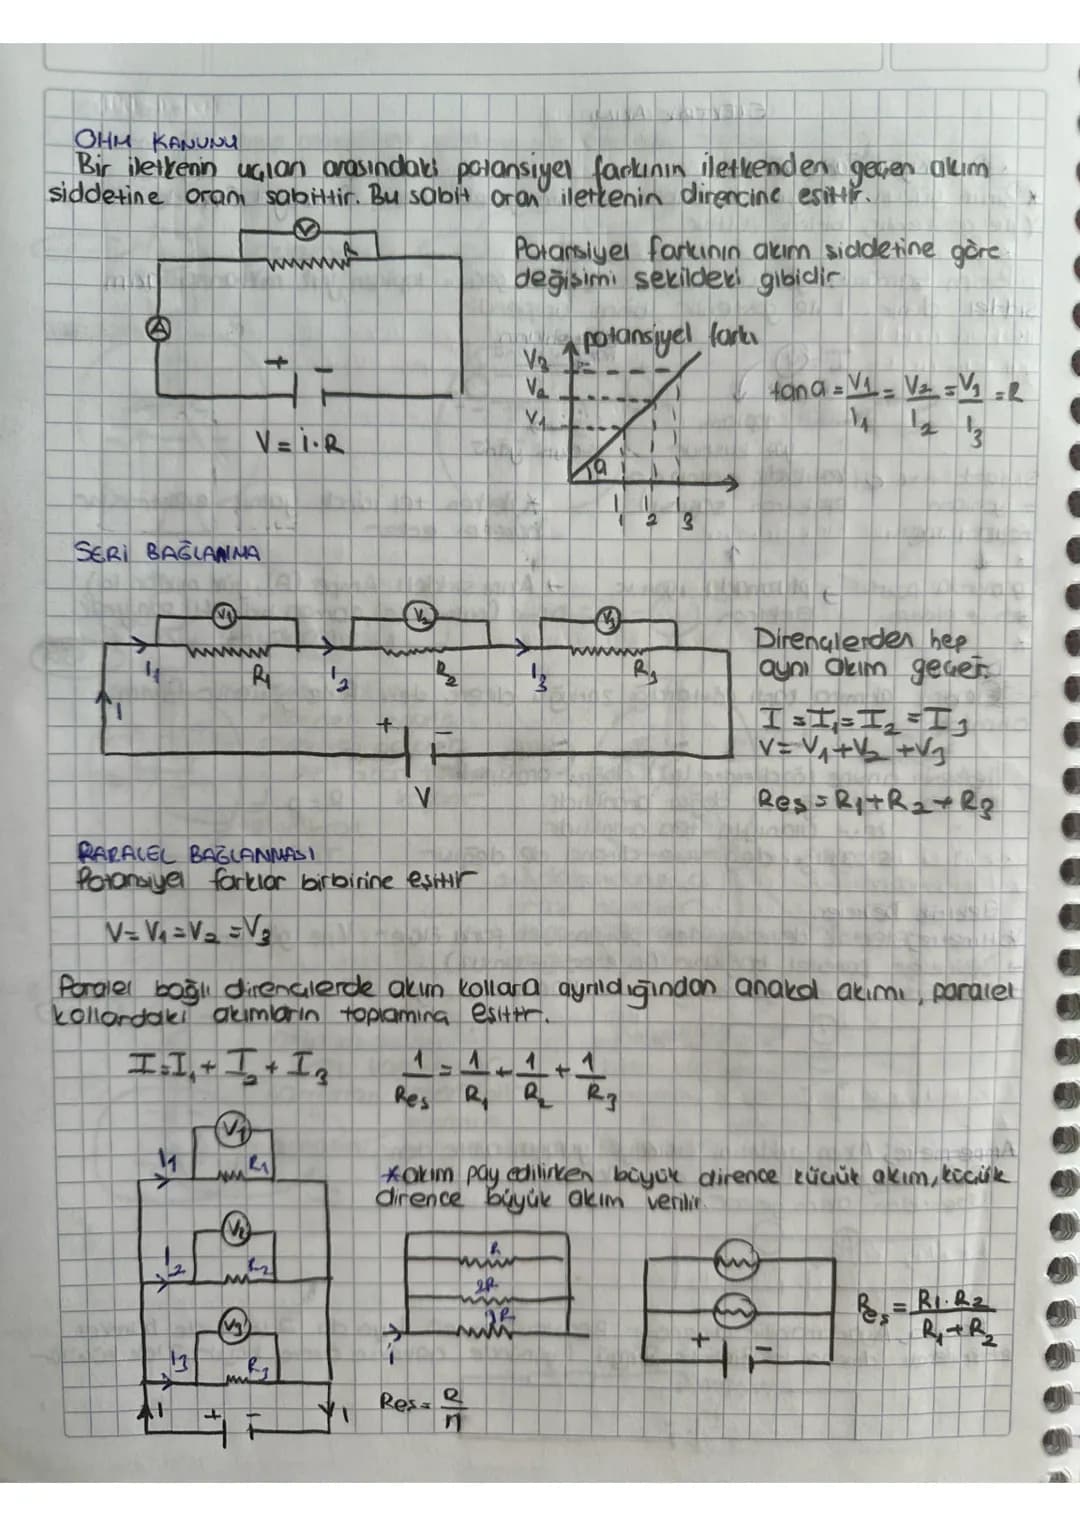 OHM KANUNU
Bir iletkenin uçları arasındaki potansiyel farkının iletkenden geçen akım
siddetine oranı sabittir. Bu sabit oran iletkenin direncine esittir.
V
R
Potansiyel farkının akım siddetine göre
değişimi sekildeki gibidir
A
+ -
V = i.R
potansiyel farkı
V3
V2
V1
a
I1 I2 I3
tana = V1/I1 = V2/I2 = V3/I3 = R
SERİ BAĞLANMA
V1 V2 V3
I1 R1 I2 R2 I3 R3
I
+ -
V
Dirençlerden hep
aynı akım geçer.
I = I1 = I2 = I3
V = V1 + V2 + V3
Reş = R1 + R2 + R3
PARALEL BAĞLANMASI
Potansiyel farklar birbirine eşittir
V = V1 = V2 = V3
Paralel bağlı dirençlerde akım kollara ayrıldığından anakol akımı, paralel
kollardaki akımların toplamına eşittir.
I = I1 + I2 + I3
1/Reş = 1/R1 + 1/R2 + 1/R3
V1
I1 R1
*akım pay edilirken büyük dirence küçük akım, küçük
dirence büyük akım verilir.
V2
I2 R2
V3
I3 R3
I + - I
R
2R
3R
i
Reş = R/n
+ -
Reş = R1.R2/R1+R2